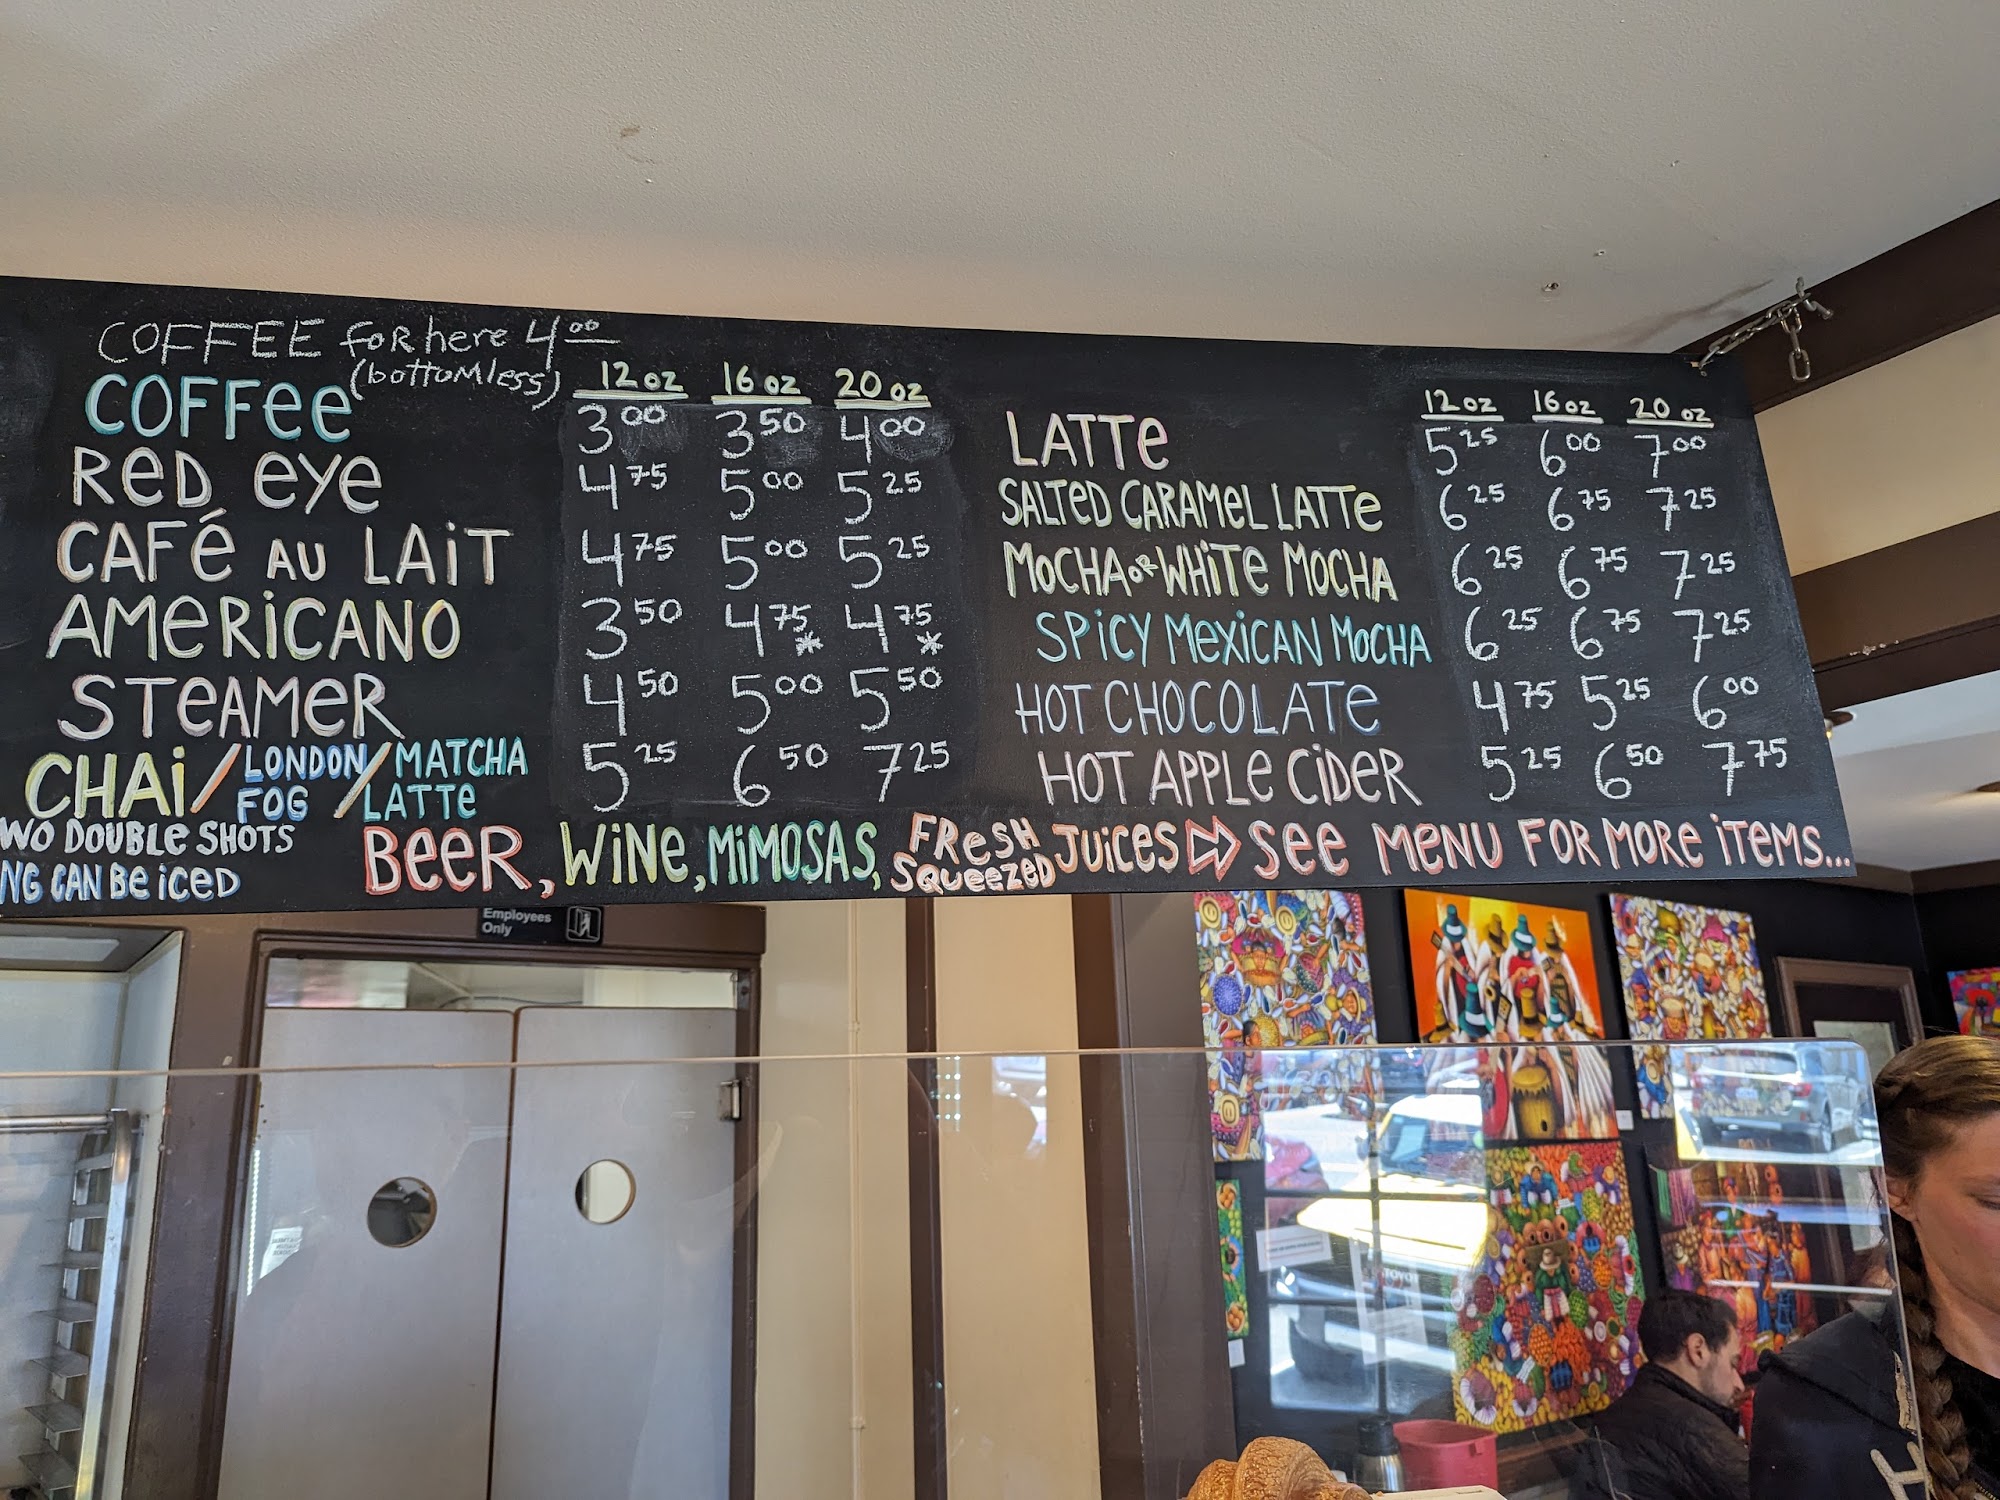 COFFEE for here 4.00
(bottomless)
12 oz 16 oz 20 oz
COFFee 3.00 3.50 4.00
Red eye 4.75 5.00 5.25
CAFé AU LAiT 4.75 5.00 5.25
AMeRiCANO 3.50 4.75* 4.75*
STeAMeR 4.50 5.00 5.50
CHAi / LONDON FOG / MATCHA LATTe 5.25 6.50 7.25
WO DOUBLe SHOTS
NG CAN Be iCeD
12 oz 16 oz 20 oz
LATTe 5.25 6.00 7.00
SALTeD CARAMeL LATTe 6.25 6.75 7.25
MOCHA OR WHiTe MOCHA 6.25 6.75 7.25
SPiCY MeXiCAN MOCHA 6.25 6.75 7.25
HOT CHOCOLATe 4.75 5.25 6.00
HOT APPLe CiDeR 5.25 6.50 7.75
BeeR, WiNe, MiMOSAS, FReSH SQUeeZeD JUiCeS SEE MENU FOR MORe iTeMS...
Employees
Only